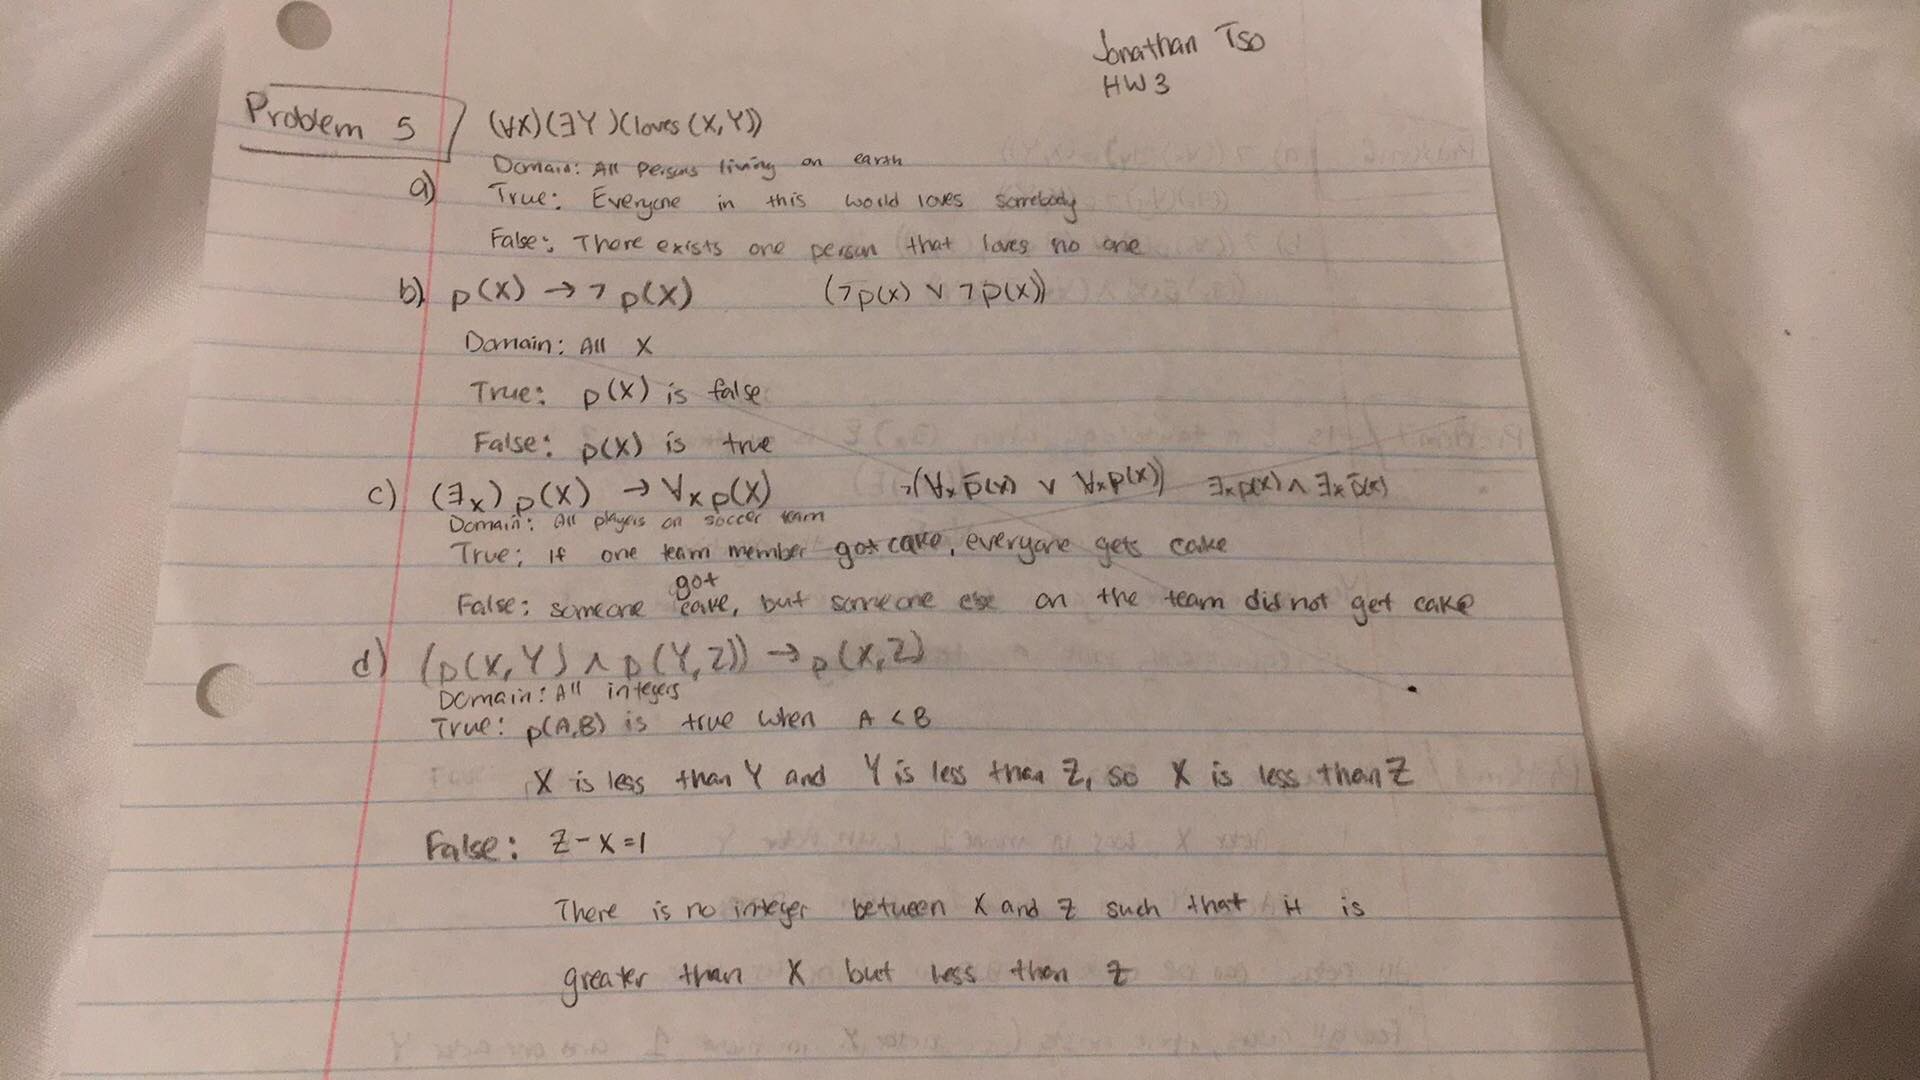 Jonathan Tso
HW 3
Problem 5
(∀X)(∃Y)(loves(X,Y))
Domain: All persons living on earth
a) True: Everyone in this world loves somebody
False: There exists one person that loves no one
b) p(X) → ¬p(X) (¬p(x) ∨ ¬p(x))
Domain: All X
True: p(X) is false
False: p(X) is true
c) (∃x) p(X) → ∀x p(X) ¬(∀x p̄(x) ∨ ∀x p(x)) ∃x p(x) ∧ ∃x p̄(x)
Domain: All players on soccer team
True: if one team member got cake, everyone gets cake
got
False: someone cake, but someone else on the team did not get cake
d) (p(X,Y) ∧ p(Y,Z)) → p(X,Z)
Domain: All integers
True: p(A,B) is true when A < B
X is less than Y and Y is less than Z, so X is less than Z
False: Z - X = 1
There is no integer between X and Z such that it is
greater than X but less than Z